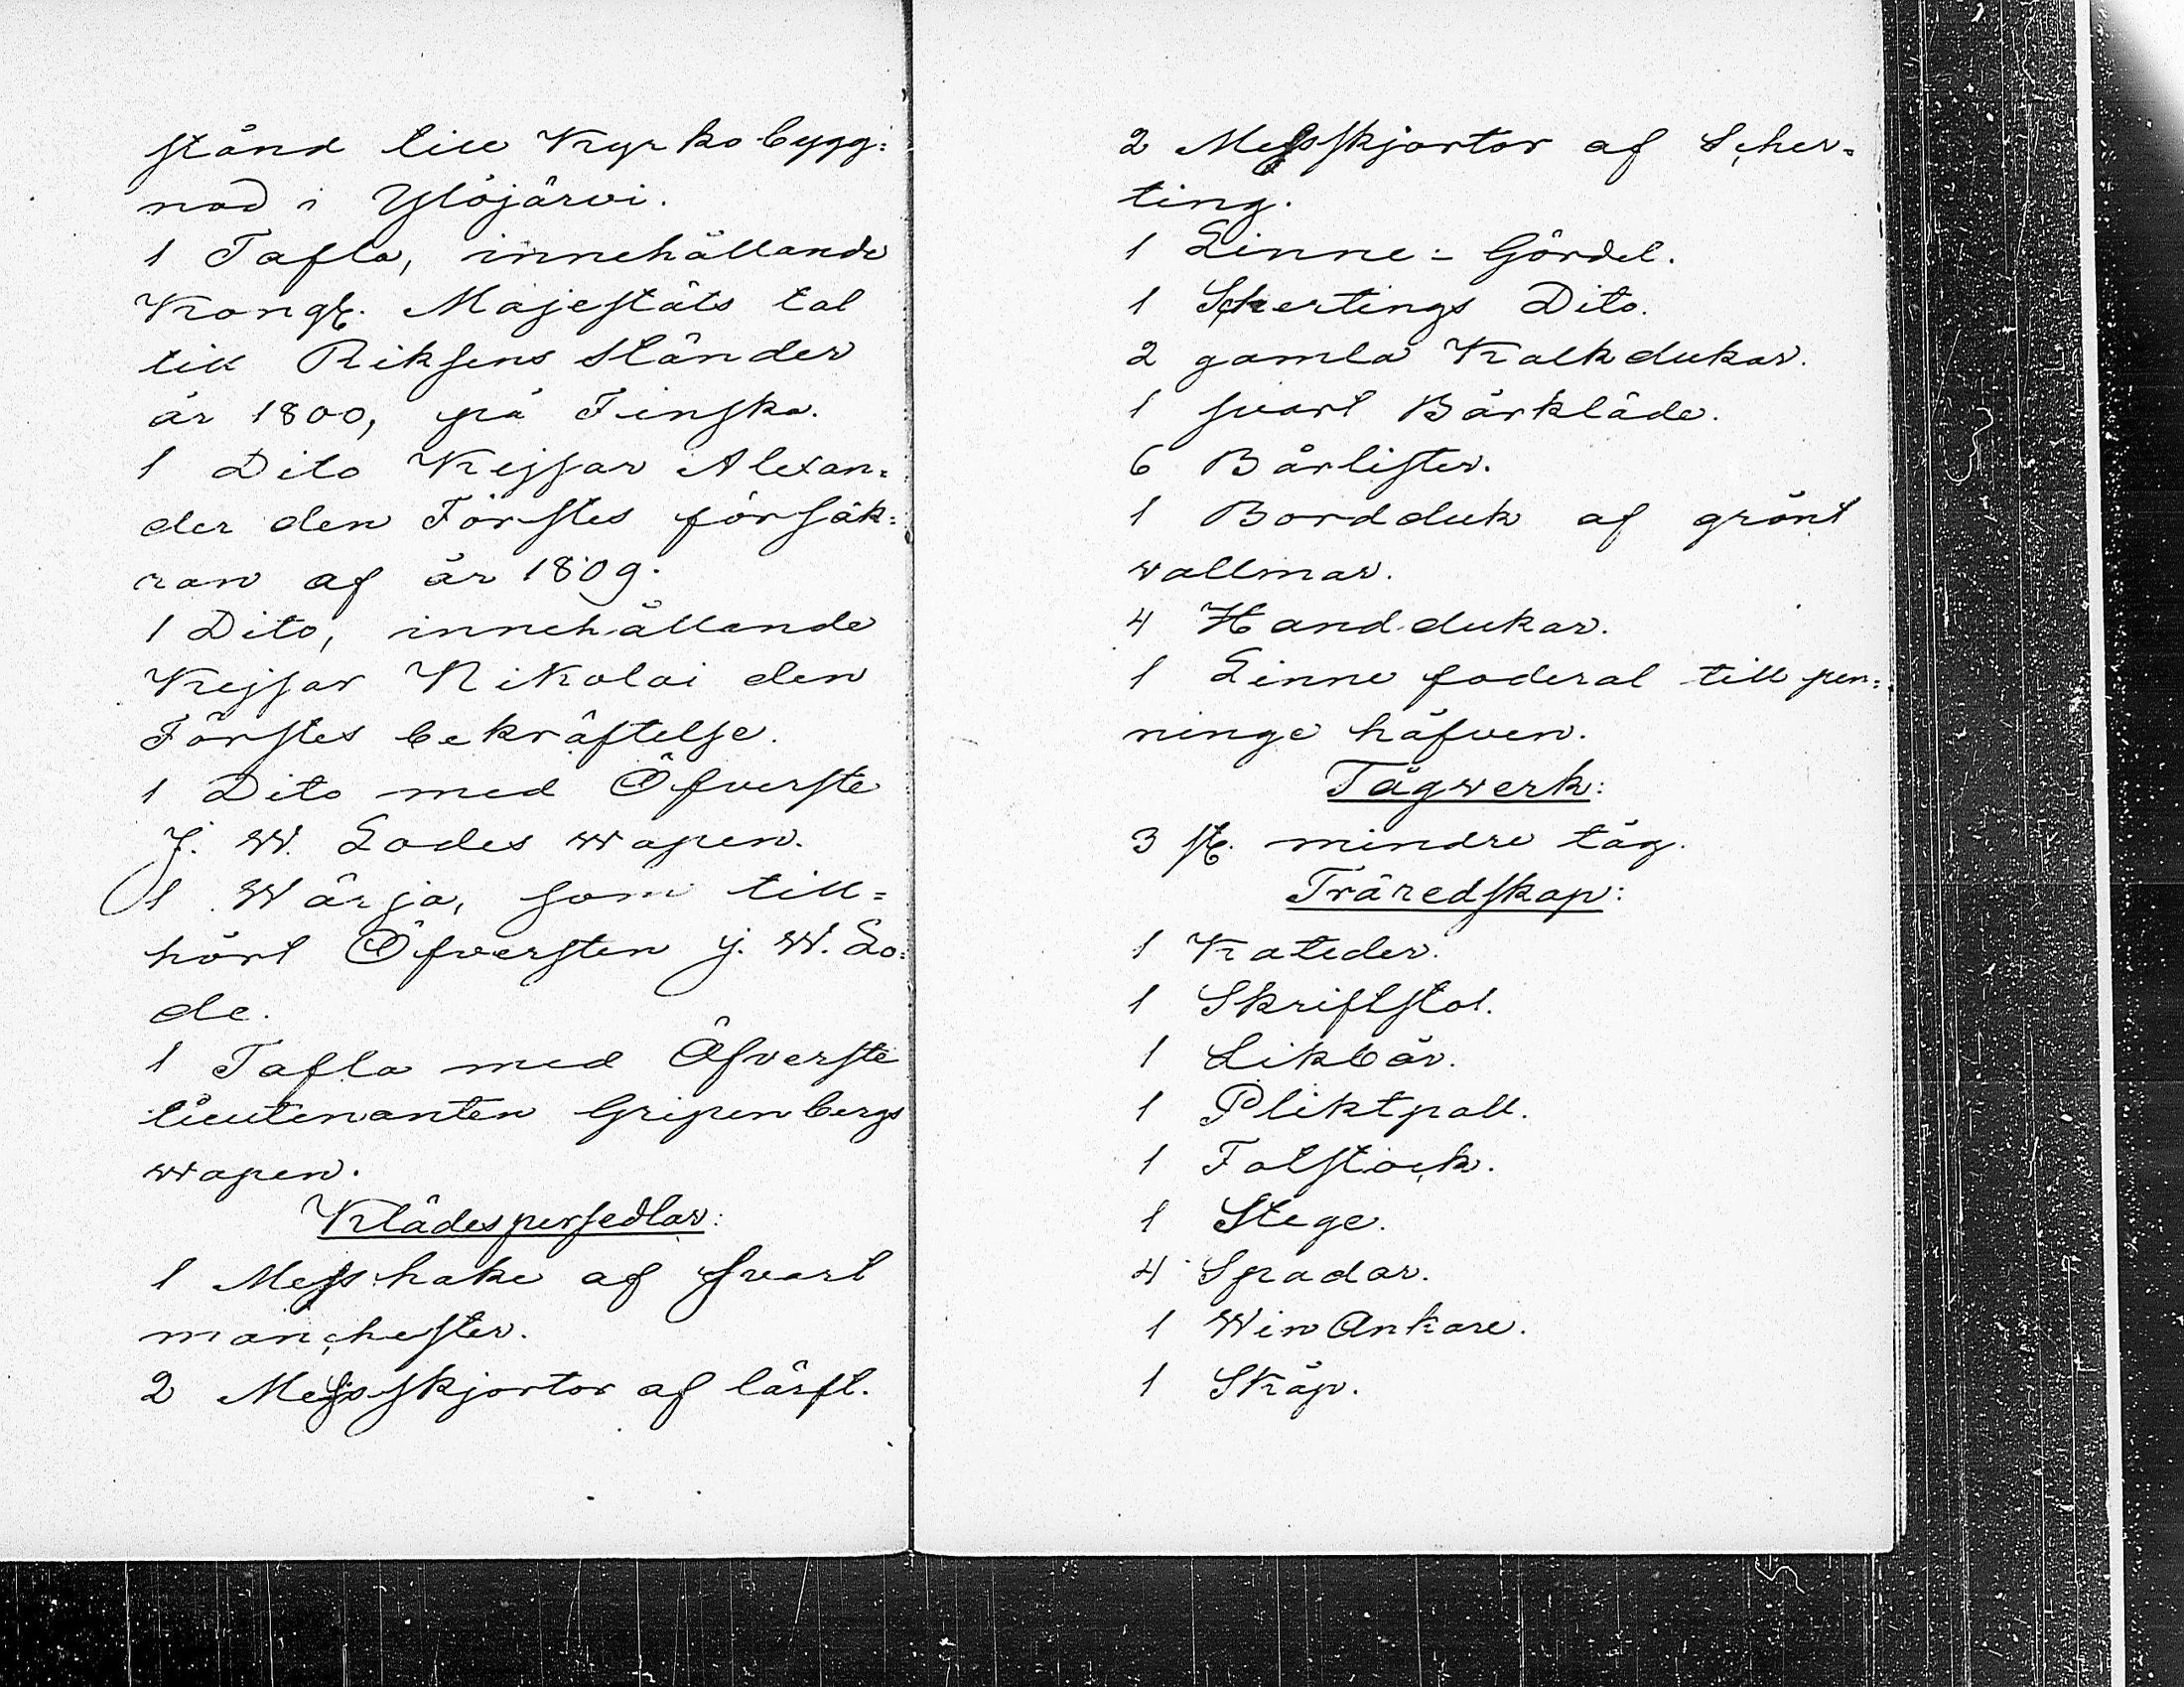 stånd till Kyrkobygg=
nad i Ylöjärvi.
1 Tafla, innehållande
Kongl. Majestäts tal
till Riksens Ständer
år 1800, på Finska.
1 Dito Kejsar Alexan=
der den Förstes försäk=
ran af år 1809.
1 Dito, innehållande
Kejsar Nikolai den
Förstes bekräftelse.
1 Dito med Öfverste
J. W. Lodes wapen.
1 Wärja, som till=
hört Öfversten J. W. Lo=
de.
1 Tafla med Öfverste
lieutenanten Gripenbergs
wapen.
Klädespersedlar:
1 Messhake af svart
manchester.
2 Messskjortor af lärft.
2 Messskjortor af Scher=
ting.
1 Linne= Gördel.
1 Schertings Dito.
2 gamla Kalkdukar.
1 svart Bårkläde.
6 Bårlister.
1 Bordduk af grönt
wallmar.
4 Handdukar.
1 Linne foderal till pen=
ninge håfven.
Tågwerk:
3 st. mindre tåg.
Träredskap:
1 Kateder.
1 Skriftstol.
1 Likbår.
1 Pliktpall.
1 Fotstock.
1 Stege.
4 Spadar.
1 Win Ankare.
1 Skåp.